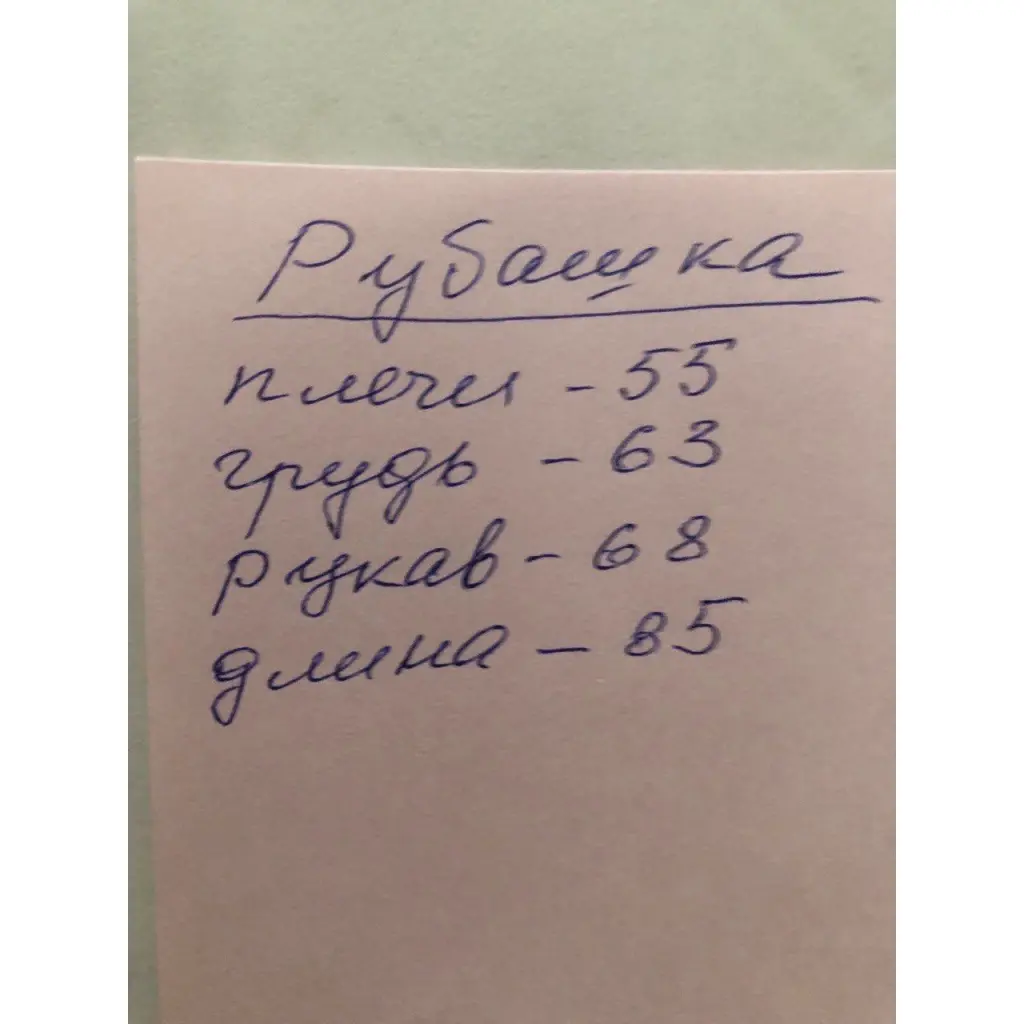 Рубашка
плечи - 55
грудь - 63
рукав - 68
длина - 85